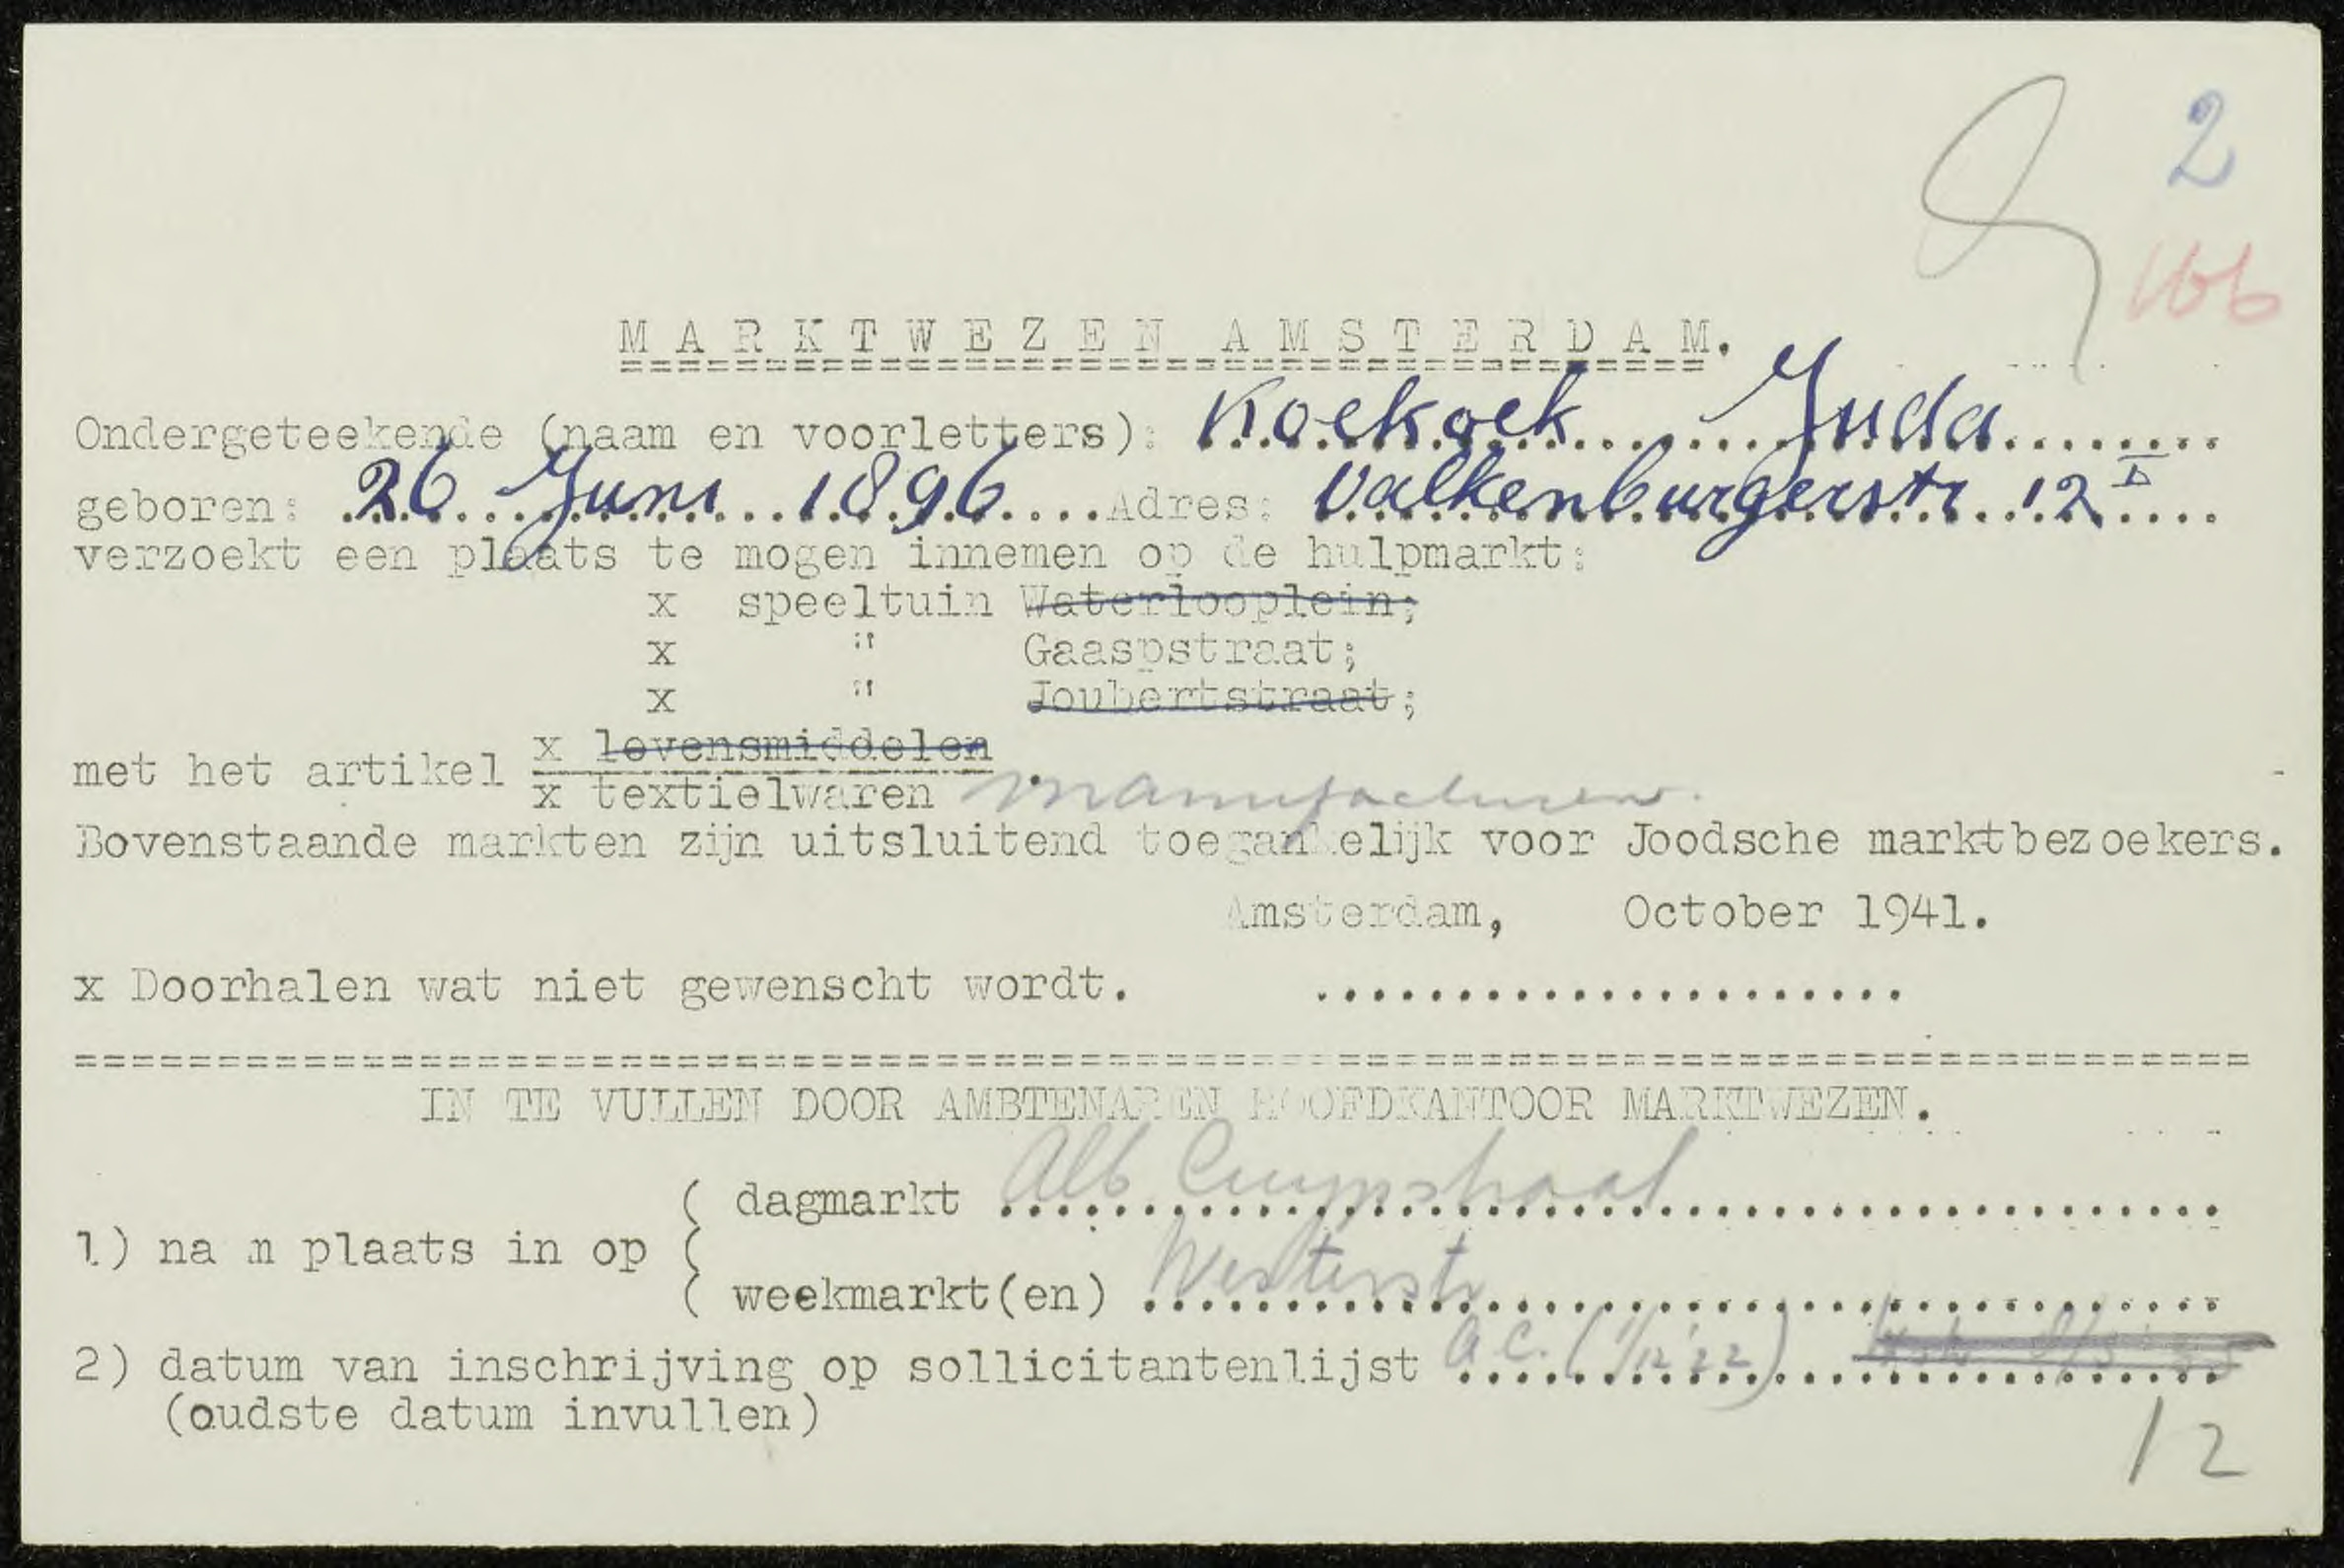 2
166
MARKTWEZEN AMSTERDAM.
Ondergeteekende (naam en voorletters): Koekoek Juda
geboren: 26 Juni 1896 Adres: Valkenburgerstr 12 I
verzoekt een plaats te mogen innemen op de hulpmarkt:
x speeltuin Waterlooplein;
x " Gaaspstraat;
x " Joubertstraat;
met het artikel x levensmiddelen
x textielwaren manufacturen.
Bovenstaande markten zijn uitsluitend toegankelijk voor Joodsche marktbezoekers.
Amsterdam, October 1941.
x Doorhalen wat niet gewenscht wordt.
IN TE VULLEN DOOR AMBTENAREN HOOFDKANTOOR MARKTWEZEN.
( dagmarkt Alb Cuypstraat
1) na m plaats in op (
( weekmarkt(en) Westerstr
2) datum van inschrijving op sollicitantenlijst a.c. (1/12 '22)
(oudste datum invullen)
12